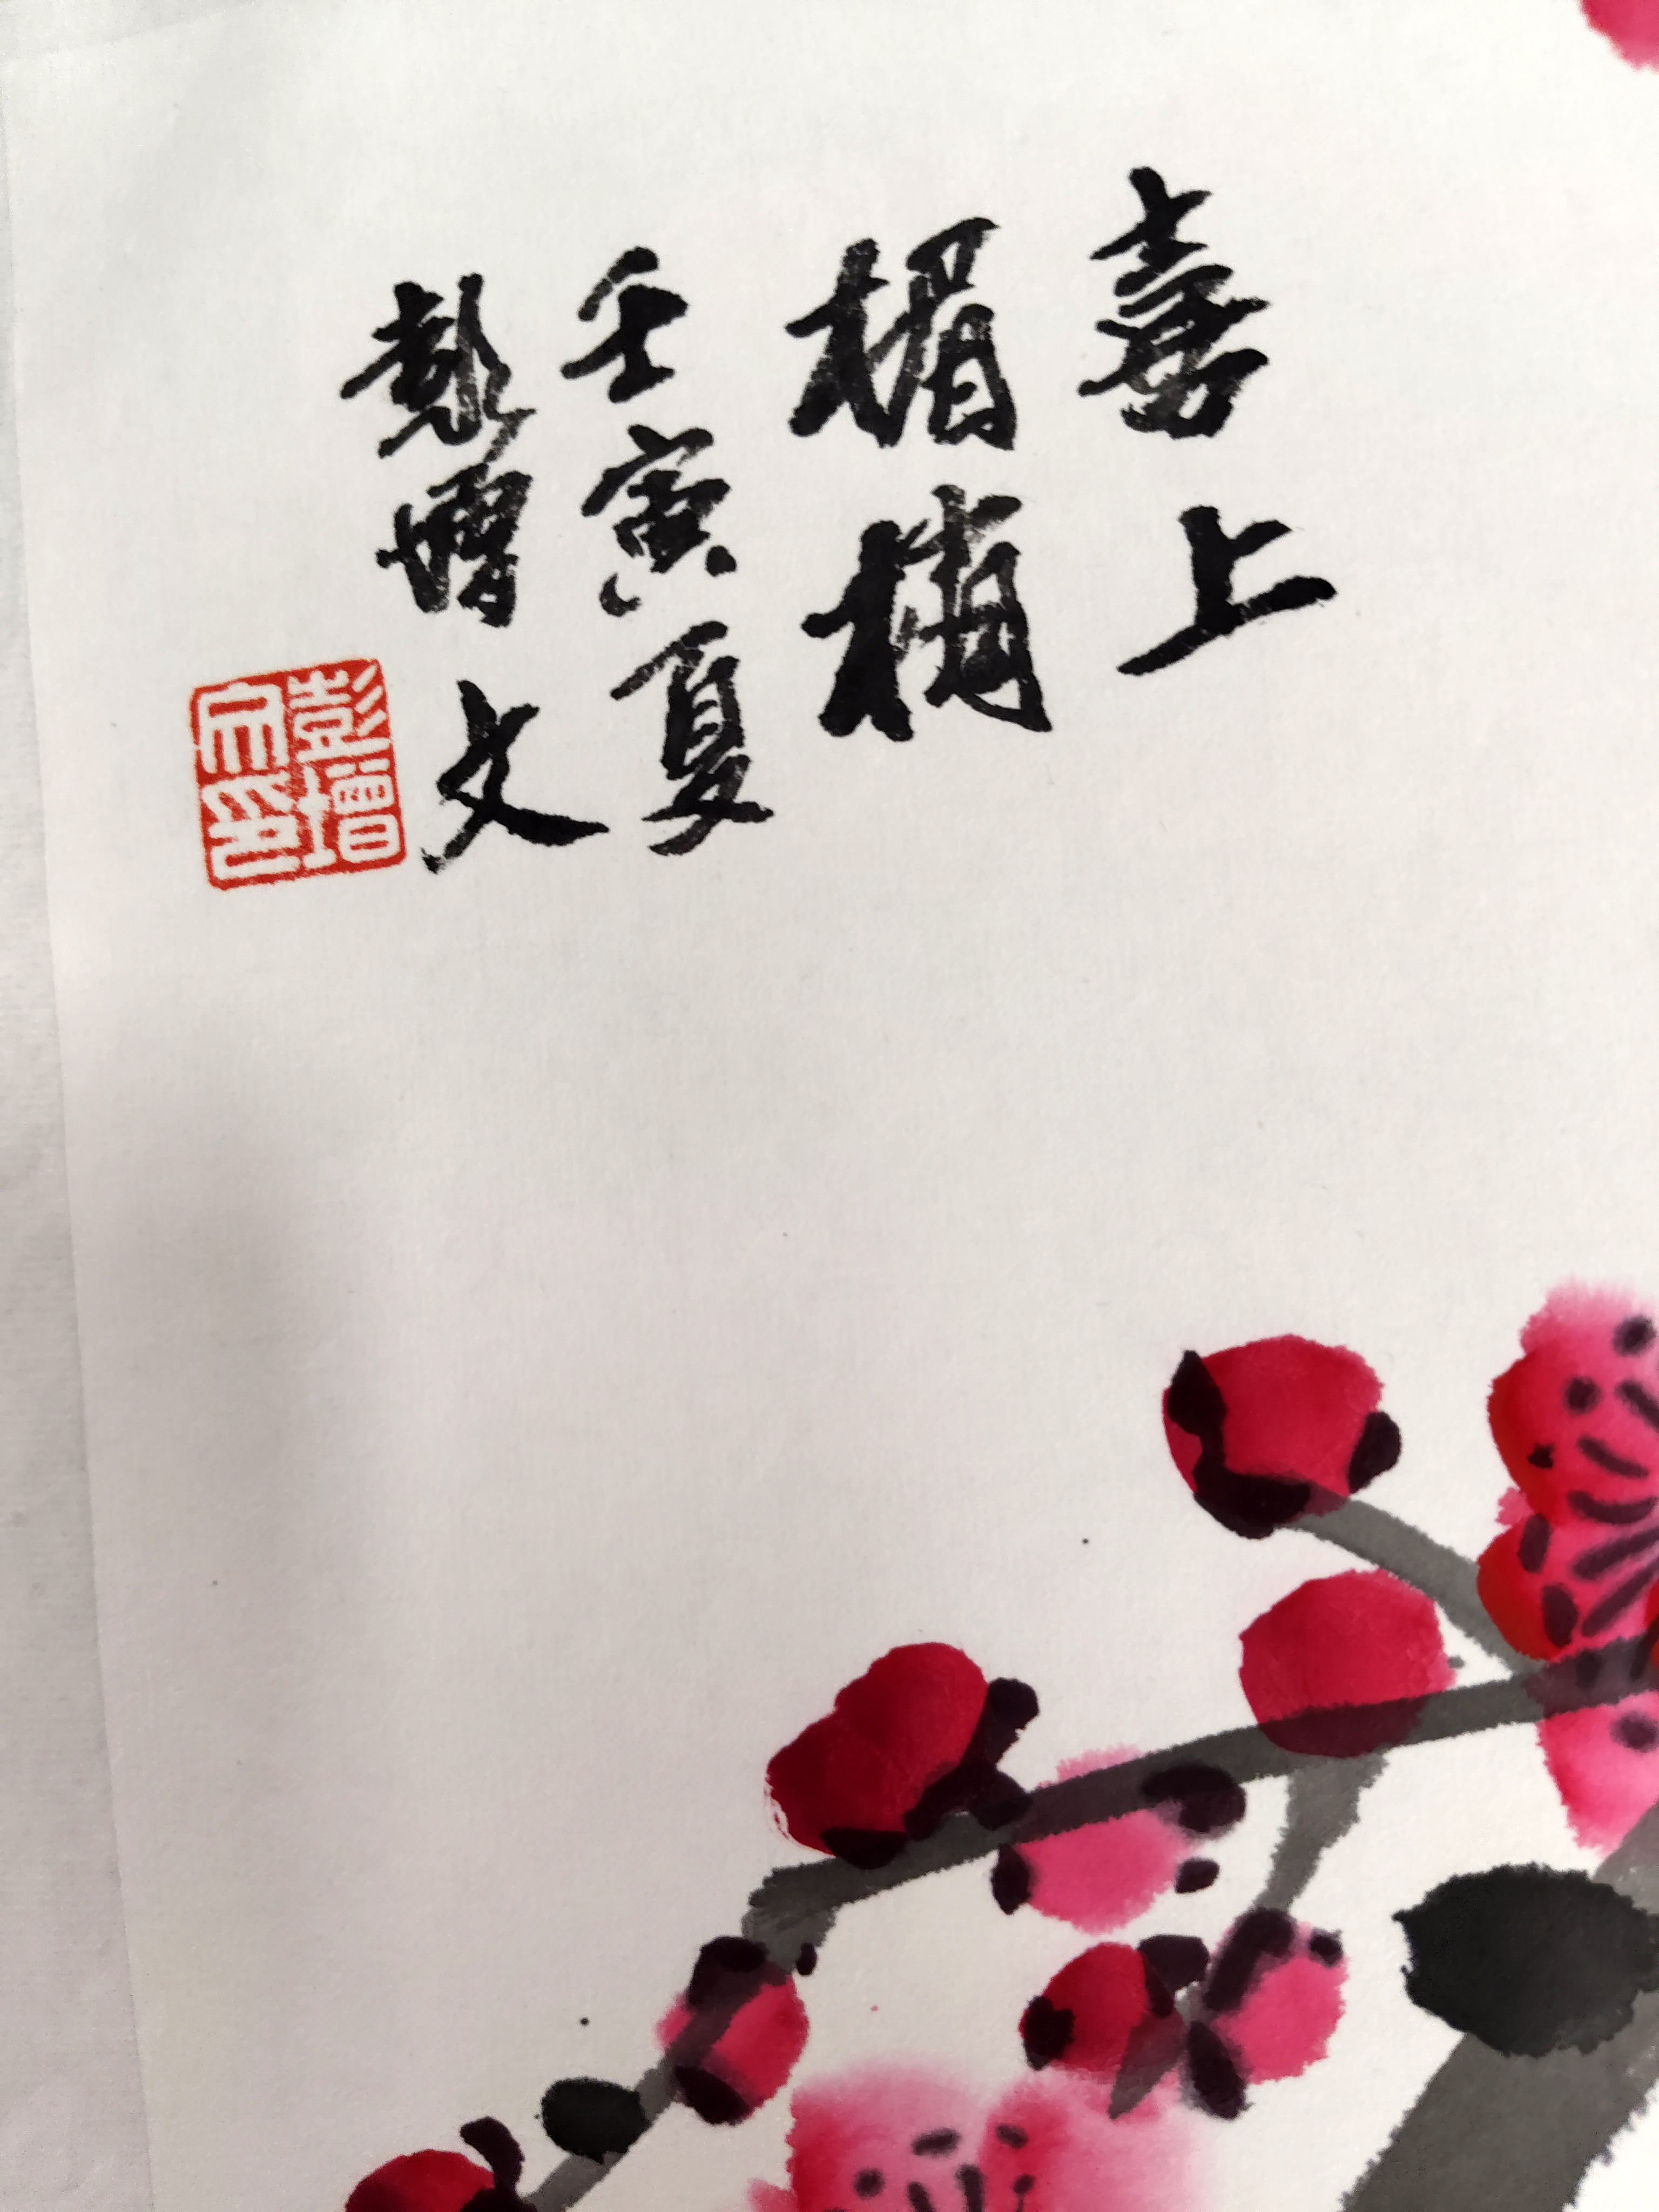 喜上
楣梢
壬寅夏
彭增文
彭增
印